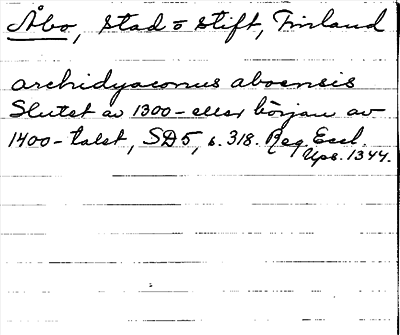 Åbo, stad o stift, Finland
archidyaconus aboensis
Slutet av 1300- eller början av
1400-talet, SD5, s. 318. Reg. Eccl.
Ups. 1344.